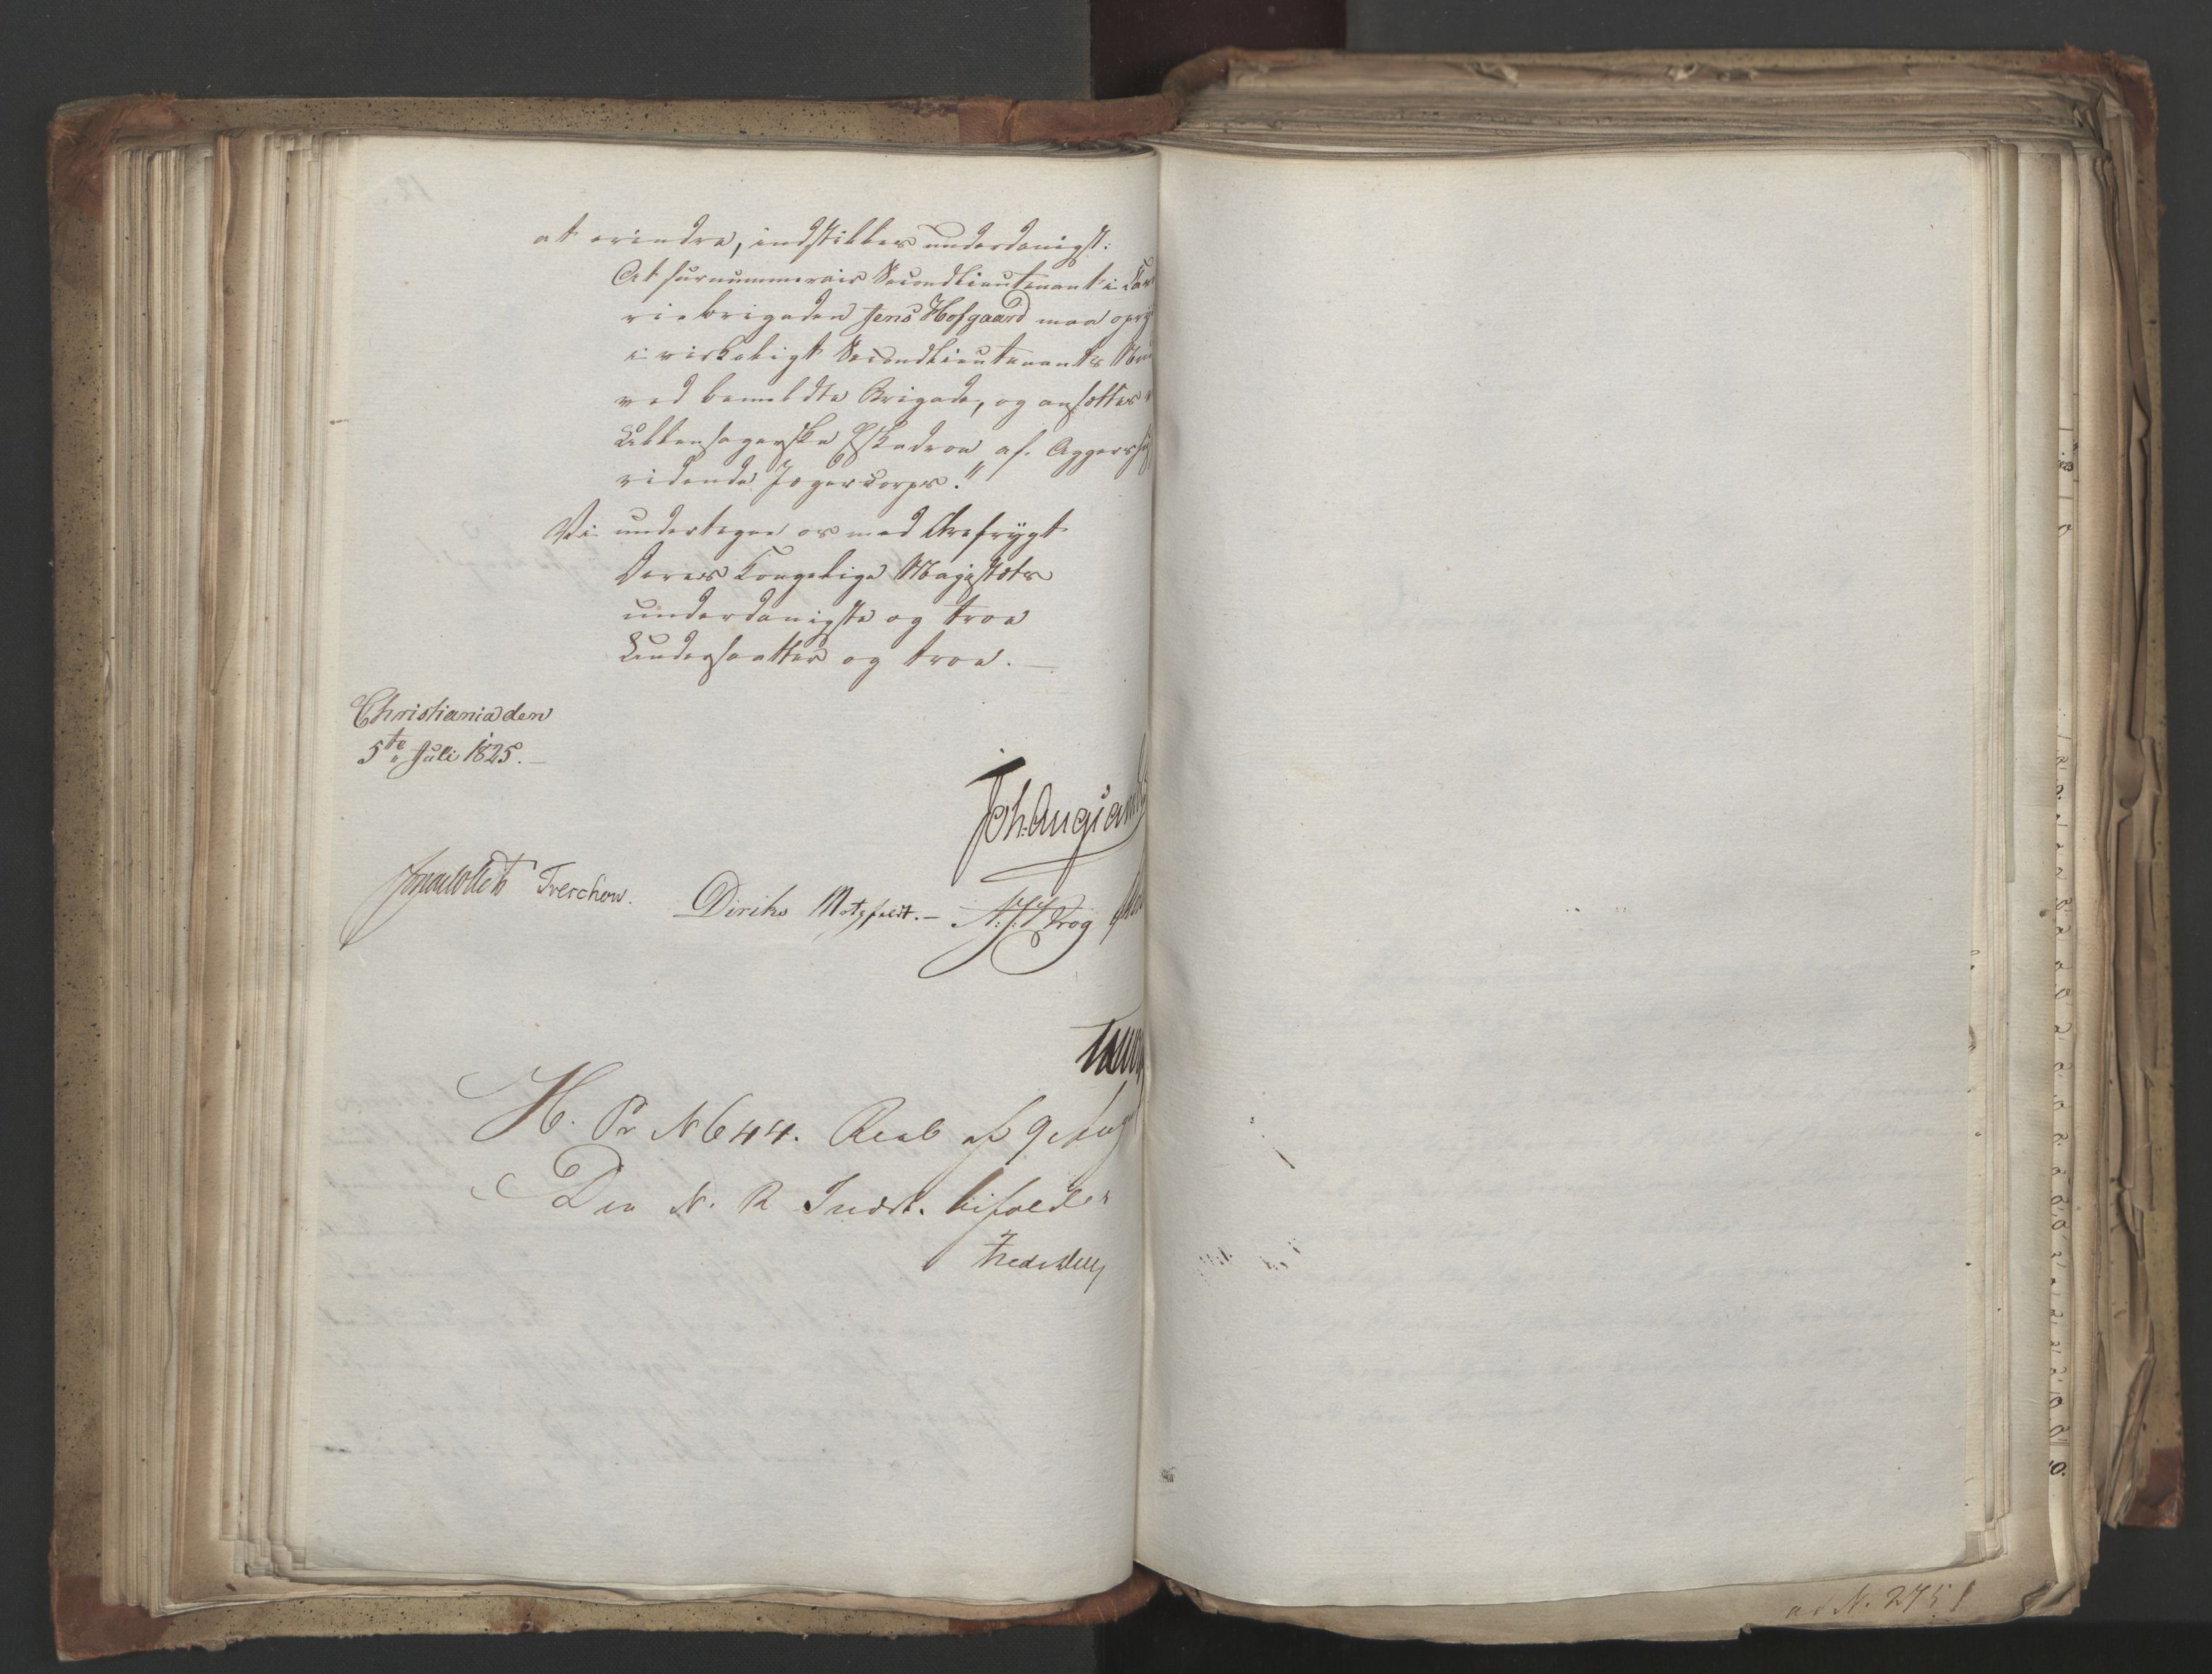 at erindre, indstilles underdanigst:
At surnummerair Secondlieutenant i Cavale
riebrigaden Jens Hofgaard maa opry
i virkeligt Secondlieutenants Num
ved bemeldte Brigade, og ansættes
Ullensagerske Eskadron af Aggershu
ridende Jægercorps."
Vi undertegne os med Ærefrygt
Deres Kongelige Majestæts
underdanigste og troe
Undersaatter og troe. —
Christiania den
5te Juli 1825. —
Joh. Aug. Sand
J. Collett Treschow. Diriks Motzfeldt. — N. J. Krog
H. Pr N 644. Resl af 9 Aug
Den N. R Indst. bifaldes
ad N. 2751